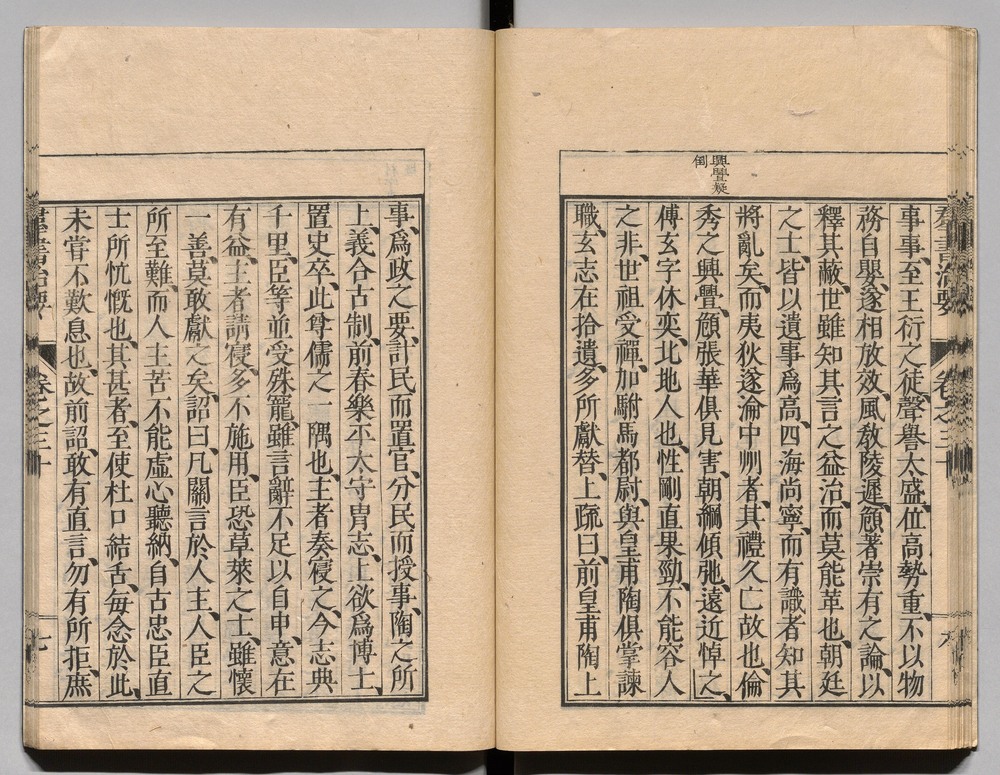 羣書治要 卷之三
事事、至王衍之徒、聲譽太盛、位高勢重、不以物
務自嬰、遂相放效、風敎陵遲、頠著崇有之論、以
釋其蔽、世雖知其言之益治、而莫能革也、朝廷
之士、皆以遺事爲高、四海尚寧、而有識者知其
將亂矣、而夷狄遂淪中州者、其禮久亡故也、倫
興舋疑
倒
秀之興舋、頠張華俱見害、朝綱傾弛、遠近悼之、
傅玄字休奕、北地人也、性剛直果勁、不能容人
之非、世祖受禪、加駙馬都尉、與皇甫陶俱掌諫
職、玄志在拾遺、多所獻替、上疏曰、前皇甫陶上
事、爲政之要、計民而置官、分民而授事、陶之所
上、義合古制、前春樂平太守冑志、上欲爲博士
置史卒、此尊儒之一隅也、主者奏寢之、今志典
千里、臣等並受殊寵、雖言辭不足以自申、意在
有益、主者請寢、多不施用、臣恐草萊之士、雖懷
一善、莫敢獻之矣、詔曰、凡關言於人主、人臣之
所至難、而人主苦不能虛心聽納、自古忠臣直
士所忼慨也、其甚者、至使杜口結舌、每念於此、
未嘗不歎息也、故前詔、敢有直言、勿有所拒、庶
羣書治要 卷之三十 七